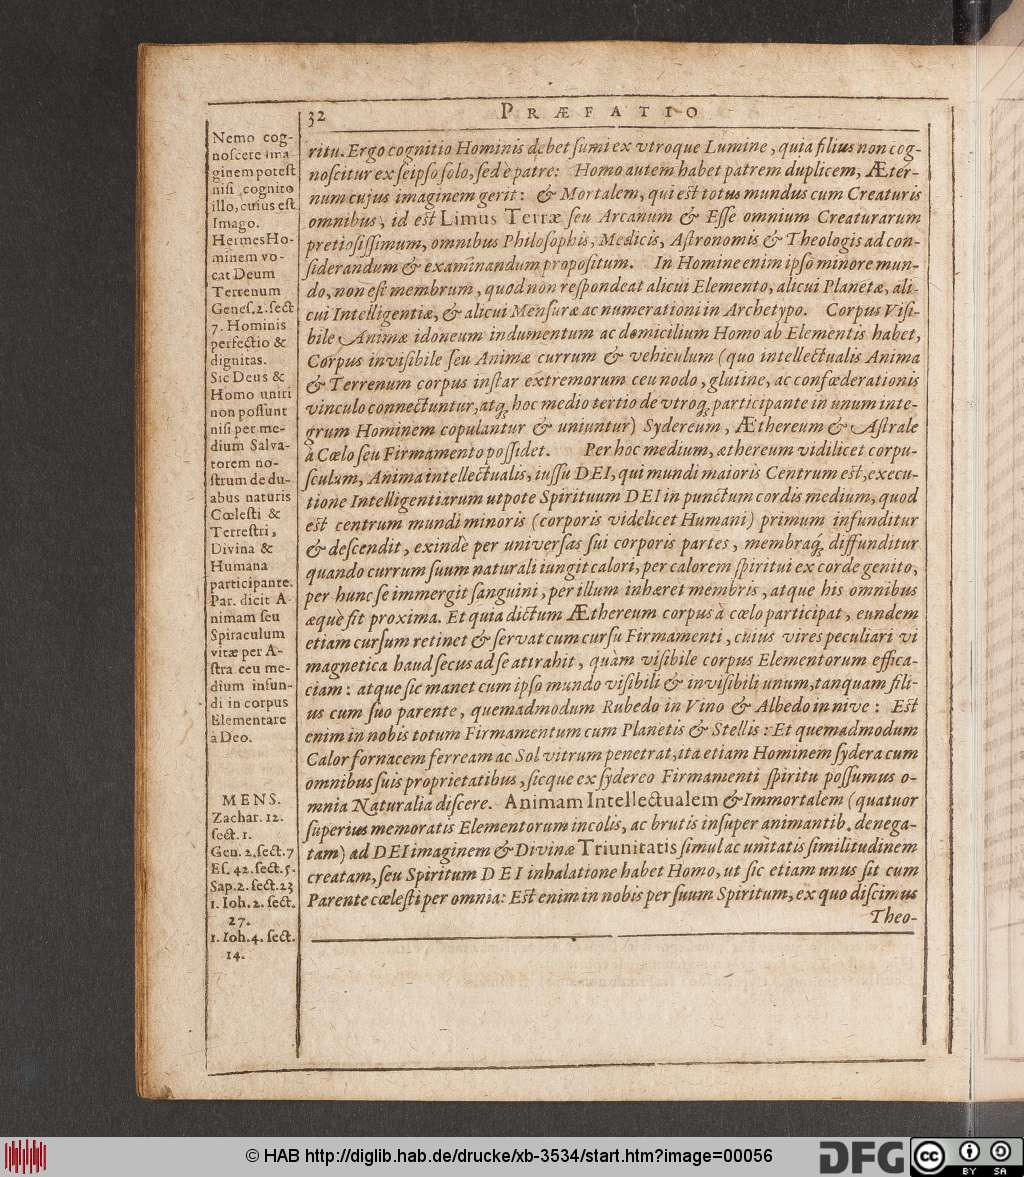 32
PRÆFATIO
Nemo cog-
noſcere ima
ginem poteſt
niſi cognito
illo, cuius eſt
Imago.
Hermes Ho-
minem vo-
cat Deum
Terrenum
Geneſ. 2. ſect
7. Hominis
perfectio &
dignitas.
Sic Deus &
Homo uniri
non poſſunt
niſi per me-
dium Salva-
torem no-
ſtrum de du-
abus naturis
Cœleſti &
Terreſtri,
Divina &
Humana
participante.
Par. dicit A-
nimam ſeu
Spiraculum
vitæ per A-
ſtra ceu me-
dium infun-
di in corpus
Elementare
à Deo.
MENS.
Zachar. 12.
ſect. 1.
Gen. 2. ſect. 7
Eſ. 42. ſect. 5.
Sap. 2. ſect. 23
1. Ioh. 2. ſect.
27.
1. Ioh. 4. ſect.
14.
ritu. Ergo cognitio Hominis debet ſumi ex vtroque Lumine, quia filius non cog-
noſcitur ex ſeipſo ſolo, ſed è patre: Homo autem habet patrem duplicem, Æter-
num cujus imaginem gerit: & Mortalem, qui eſt totus mundus cum Creaturis
omnibus, id eſt Limus Terræ ſeu Arcanum & Eſſe omnium Creaturarum
pretioſiſſimum, omnibus Philoſophis, Medicis, Aſtronomis & Theologis ad con-
ſiderandum & examinandum propoſitum. In Homine enim ipſo minore mun-
do, non eſt membrum, quod non reſpondeat alicui Elemento, alicui Planetæ, ali-
cui Intelligentiæ, & alicui Menſuræ ac numerationi in Archetypo. Corpus Viſi-
bile Animæ idoneum indumentum ac domicilium Homo ab Elementis habet,
Corpus inviſibile ſeu Animæ currum & vehiculum (quo intellectualis Anima
& Terrenum corpus inſtar extremorum ceu nodo, glutine, ac confœderationis
vinculo connectuntur, atq́; hoc medio tertio de vtroq́; participante in unum inte-
grum Hominem copulantur & uniuntur) Sydereum, Æthereum & Aſtrale
à Cœlo ſeu Firmamento poſſidet. Per hoc medium, æthereum vidilicet corpu-
ſculum, Anima intellectualis, iuſſu DEI, qui mundi maioris Centrum eſt, execu-
tione Intelligentiarum utpote Spirituum DEI in punctum cordis medium, quod
eſt centrum mundi minoris (corporis videlicet Humani) primum infunditur
& deſcendit, exinde per univerſas ſui corporis partes, membraq́; diffunditur
quando currum ſuum naturali iungit calori, per calorem ſpiritui ex corde genito,
per hunc ſe immergit ſanguini, per illum inhæret membris, atque his omnibus
æquè fit proxima. Et quia dictum Æthereum corpus à cœlo participat, eundem
etiam curſum retinet & ſervat cum curſu Firmamenti, cuius vires peculiari vi
magnetica haud ſecus ad ſe attrahit, quàm viſibile corpus Elementorum effica-
ciam: atque ſic manet cum ipſo mundo viſibili & inviſibili unum, tanquam fili-
us cum ſuo parente, quemadmodum Rubedo in Vino & Albedo in nive: Eſt
enim in nobis totum Firmamentum cum Planetis & Stellis: Et quemadmodum
Calor fornacem ferream ac Sol vitrum penetrat, ita etiam Hominem ſydera cum
omnibus ſuis proprietatibus, ſicque ex ſydereo Firmamenti ſpiritu poſſumus o-
mnia Naturalia diſcere. Animam Intellectualem & Immortalem (quatuor
ſuperius memoratis Elementorum incolis, ac brutis inſuper animantib. denega-
tam) ad DEI imaginem & Divinæ Triunitatis ſimul ac unitatis ſimilitudinem
creatam, ſeu Spiritum DEI inhalatione habet Homo, ut ſic etiam unus ſit cum
Parente cœleſti per omnia: Eſt enim in nobis per ſuum Spiritum, ex quo diſcimus
Theo-
© HAB http://diglib.hab.de/drucke/xb-3534/start.htm?image=00056
DFG
cc
BY SA